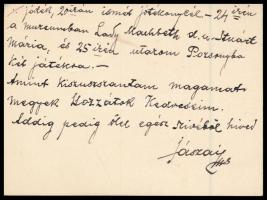 játék, 20ikán ismét jótékonycél - 24ikén
a muzeumban Lady Machbeth d. u. Stuárt
Mária, és 25ikén utazom Pozsonyba
két játékra. -
Amint kiszuszszantam magamat
megyek Hozzátok Kedveseim.
Addig pedig ölel egész szivéből hived
Jászai